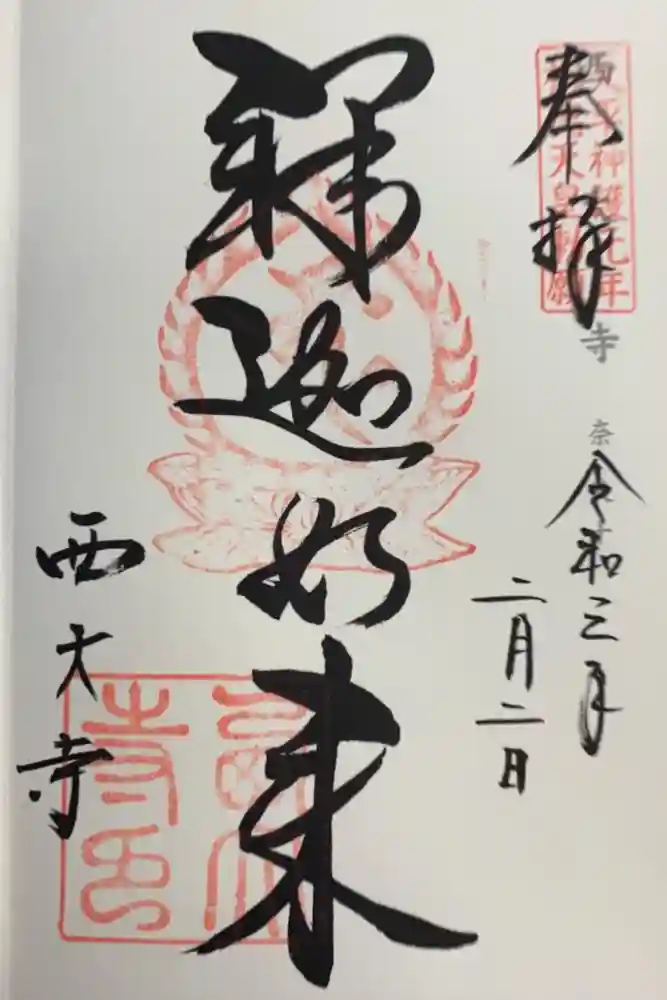 奉拝
天平神護元年
天皇勅願
寺
奈
令和三年
二月二日
釋迦如来
西大寺
西大
寺印